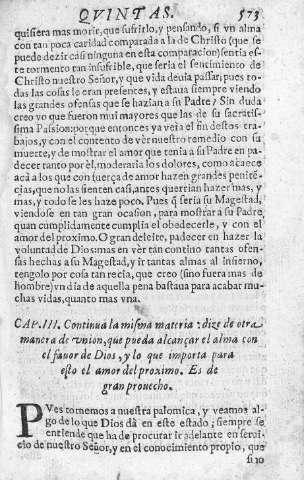 QVINTAS. 573
quisiera mas morir, que sufrirlo, y pensando, si vn alma
con tan poca caridad comparada a la de Christo (que se
puede dezir casi ninguna en esta comparacion) sentia es-
te tormento tan insufrible, que seria el sentimiento de
Christo nuestro Señor, y que vida deuia passar, pues to-
das las cosas le eran presentes, y estaua siempre viendo
las grandes ofensas que se hazian a su Padre? Sin duda
creo yo que fueron mui mayores que las de su sacratis-
sima Passion: porque entonces ya veia el fin destos tra-
bajos, y con el contento de vèr nuestro remedio con su
muerte, y de mostrar el amor que tenia a su Padre en pa-
decer tanto por èl, moderaria los dolores, como acaece
acà a los que con fuerça de amor hazen grandes peniten-
cias, que no las sienten casi, antes querrian hazer mas, y
mas, y todo se les haze poco. Pues q̃ seria su Magestad,
viendose en tan gran ocasion, para mostrar a su Padre,
quan cumplidamente cumplia el obedecerle, y con el
amor del proximo. O gran deleite, padecer en hazer la
voluntad de Dios: mas en vèr tan contino tantas ofen-
sas hechas a su Magestad, y ir tantas almas al infierno,
tengolo por cosa tan recia, que creo (sino fuera mas de
hombre) vn dia de aquella pena bastaua para acabar mu-
chas vidas, quanto mas vna.
CAP. III. Continua la misma materia: dize de otra
manera de vnion, que pueda alcançar el alma con
el fauor de Dios, y lo que importa para
esto el amor del proximo. Es de
gran prouecho.
PVes tornemos a nuestra palomica, y veamos al-
go de lo que Dios dà en este estado; siempre se
entiende que ha de procurar ir adelante en serui-
cio de nuestro Señor, y en el conocimiento propio, que
si no